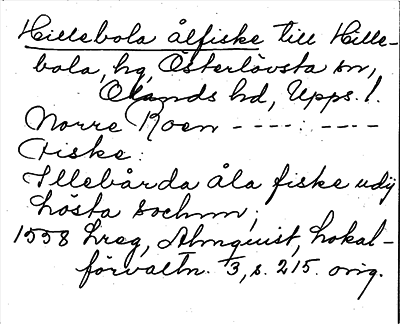 Hillebola ålfiske till Hille-
bola, hg, Österlövsta sn,
Olands hd, Upps. l.
Norre Roen ----:----
Fiske:
Illebårda åla fiske udij
Lösta sochnn;
1558 Lreg, Almquist, Lokal-
förvaltn. 1/3, s. 215. orig.